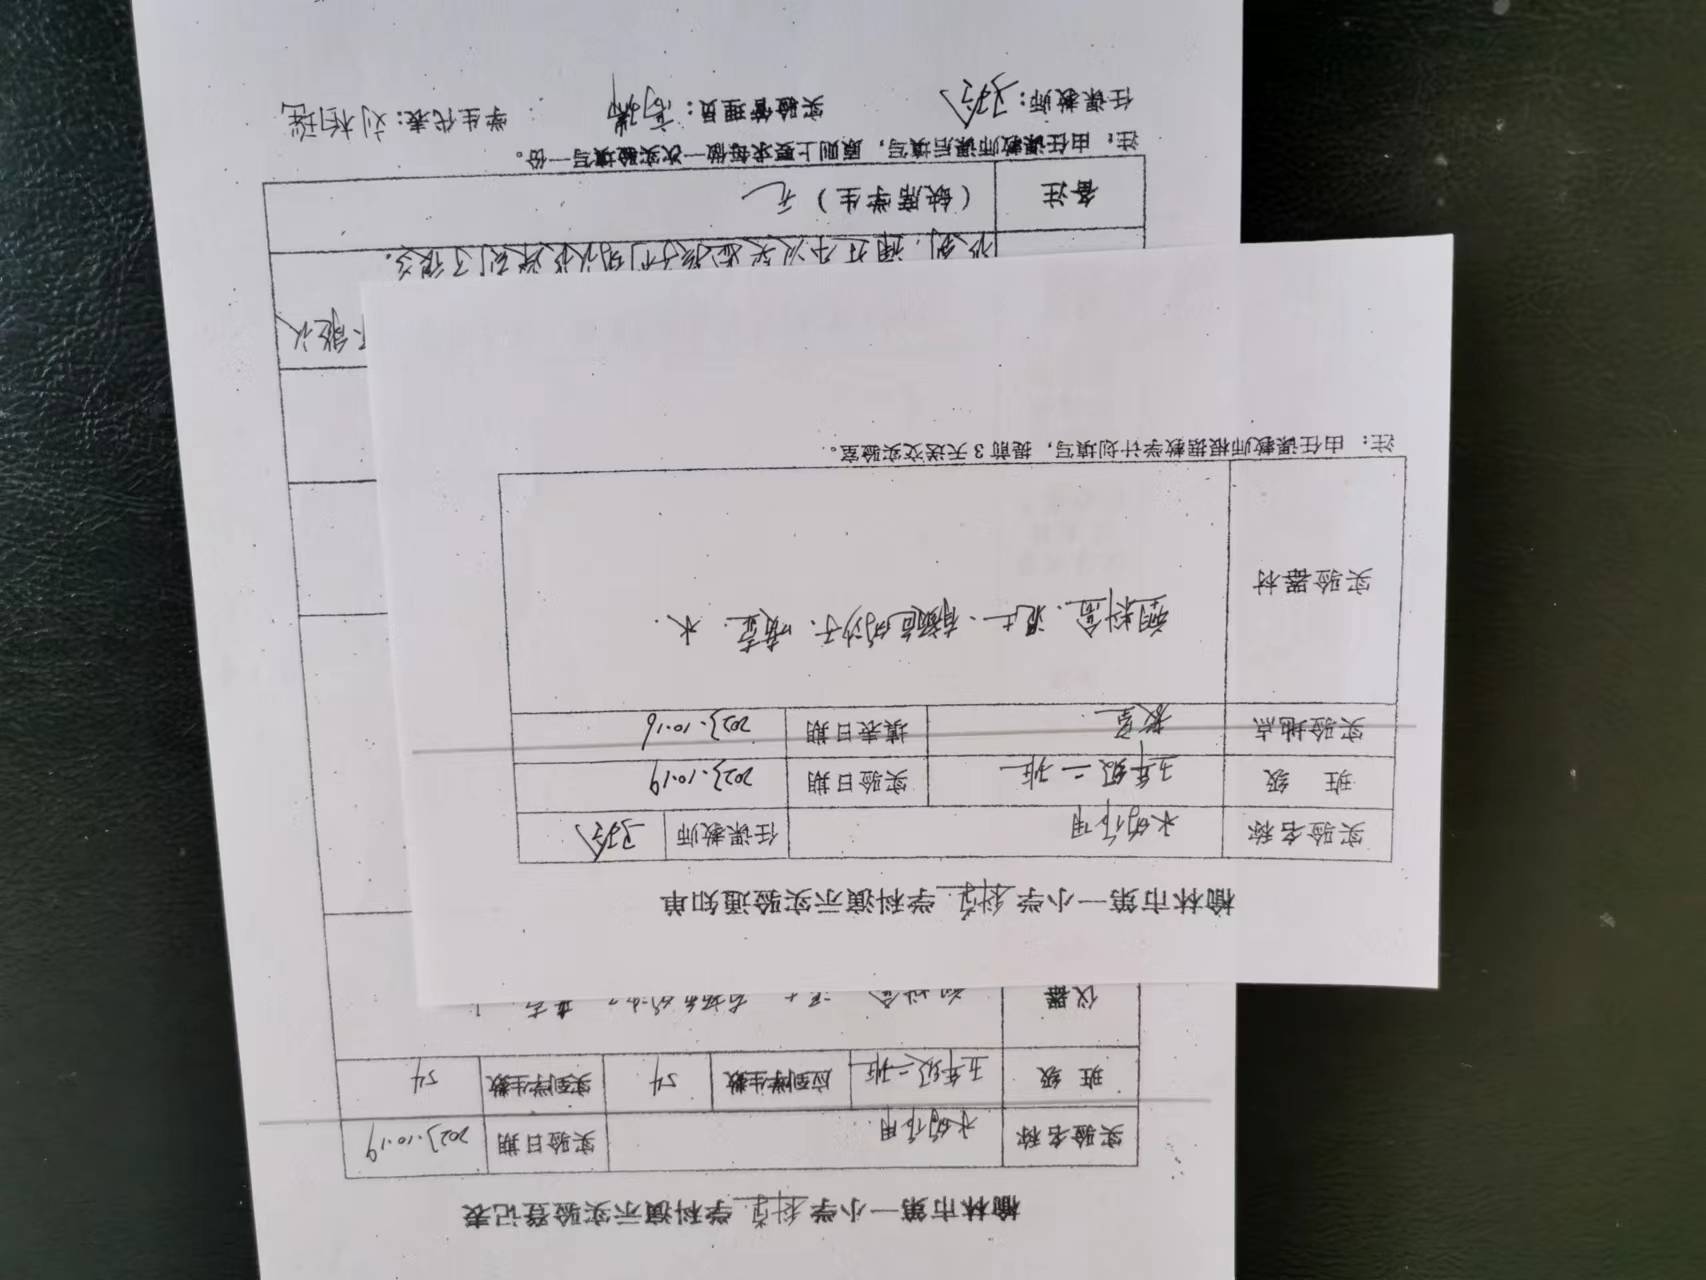 榆林市第一小学科学学科演示实验通知单
实验名称 水的作用 任课教师
班 级 五年级二班 实验日期 2023.10.19
实验地点 教室 填表日期 2023.10.16
实验器材 塑料盒、泥土、有颜色的沙子、喷壶、水
注：由任课教师根据教学计划填写，提前3天送交实验室。
榆林市第一小学科学学科演示实验登记表
实验名称 水的作用 实验日期 2023.10.19
班 级 五年级二班 应到学生数 54 实到学生数 54
仪器
备注 （缺席学生）无
注：由任课教师课后填写，原则上要求每做一次实验填写一份。
任课教师： 实验管理员： 学生代表：刘柏瑶